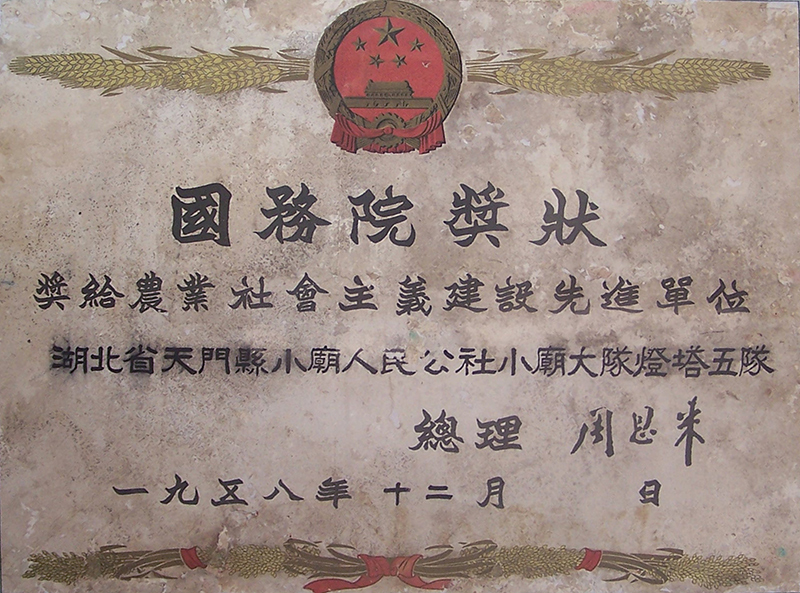 國務院奬狀
奬給農業社會主義建設先進單位
湖北省天門縣小廟人民公社小廟大隊燈塔五隊
總理 周恩来
一九五八年 十二月 日